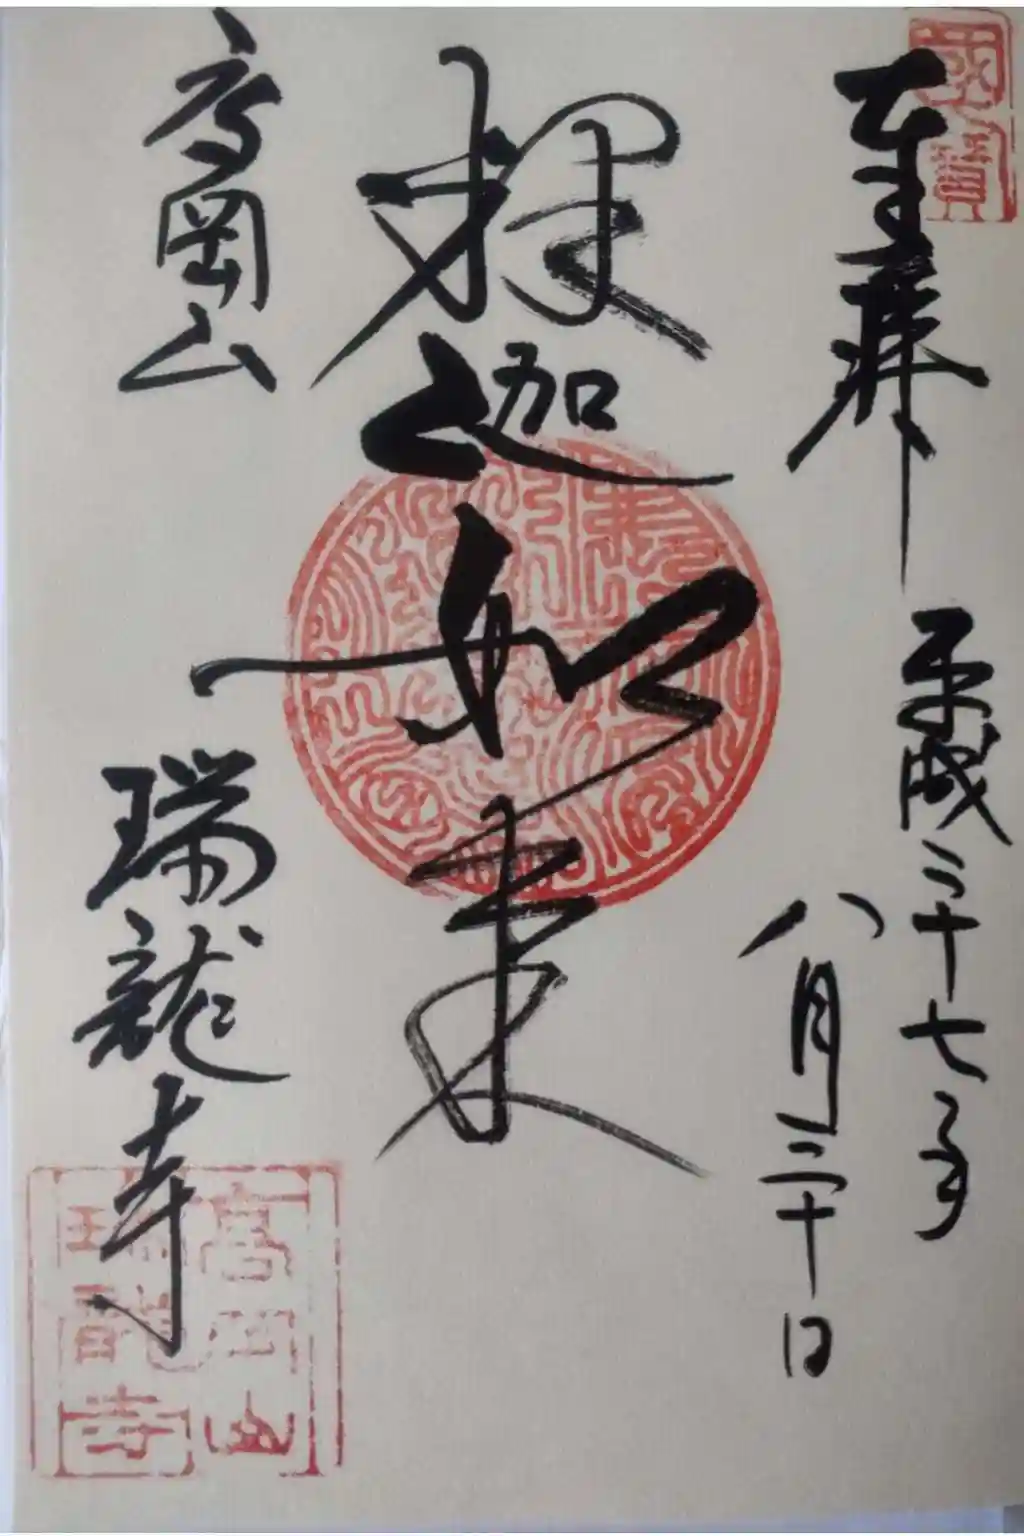 國寶
奉拝
平成二十七年
八月三十日
釋迦如来
高岡山
瑞龍寺
高岡山
瑞龍寺